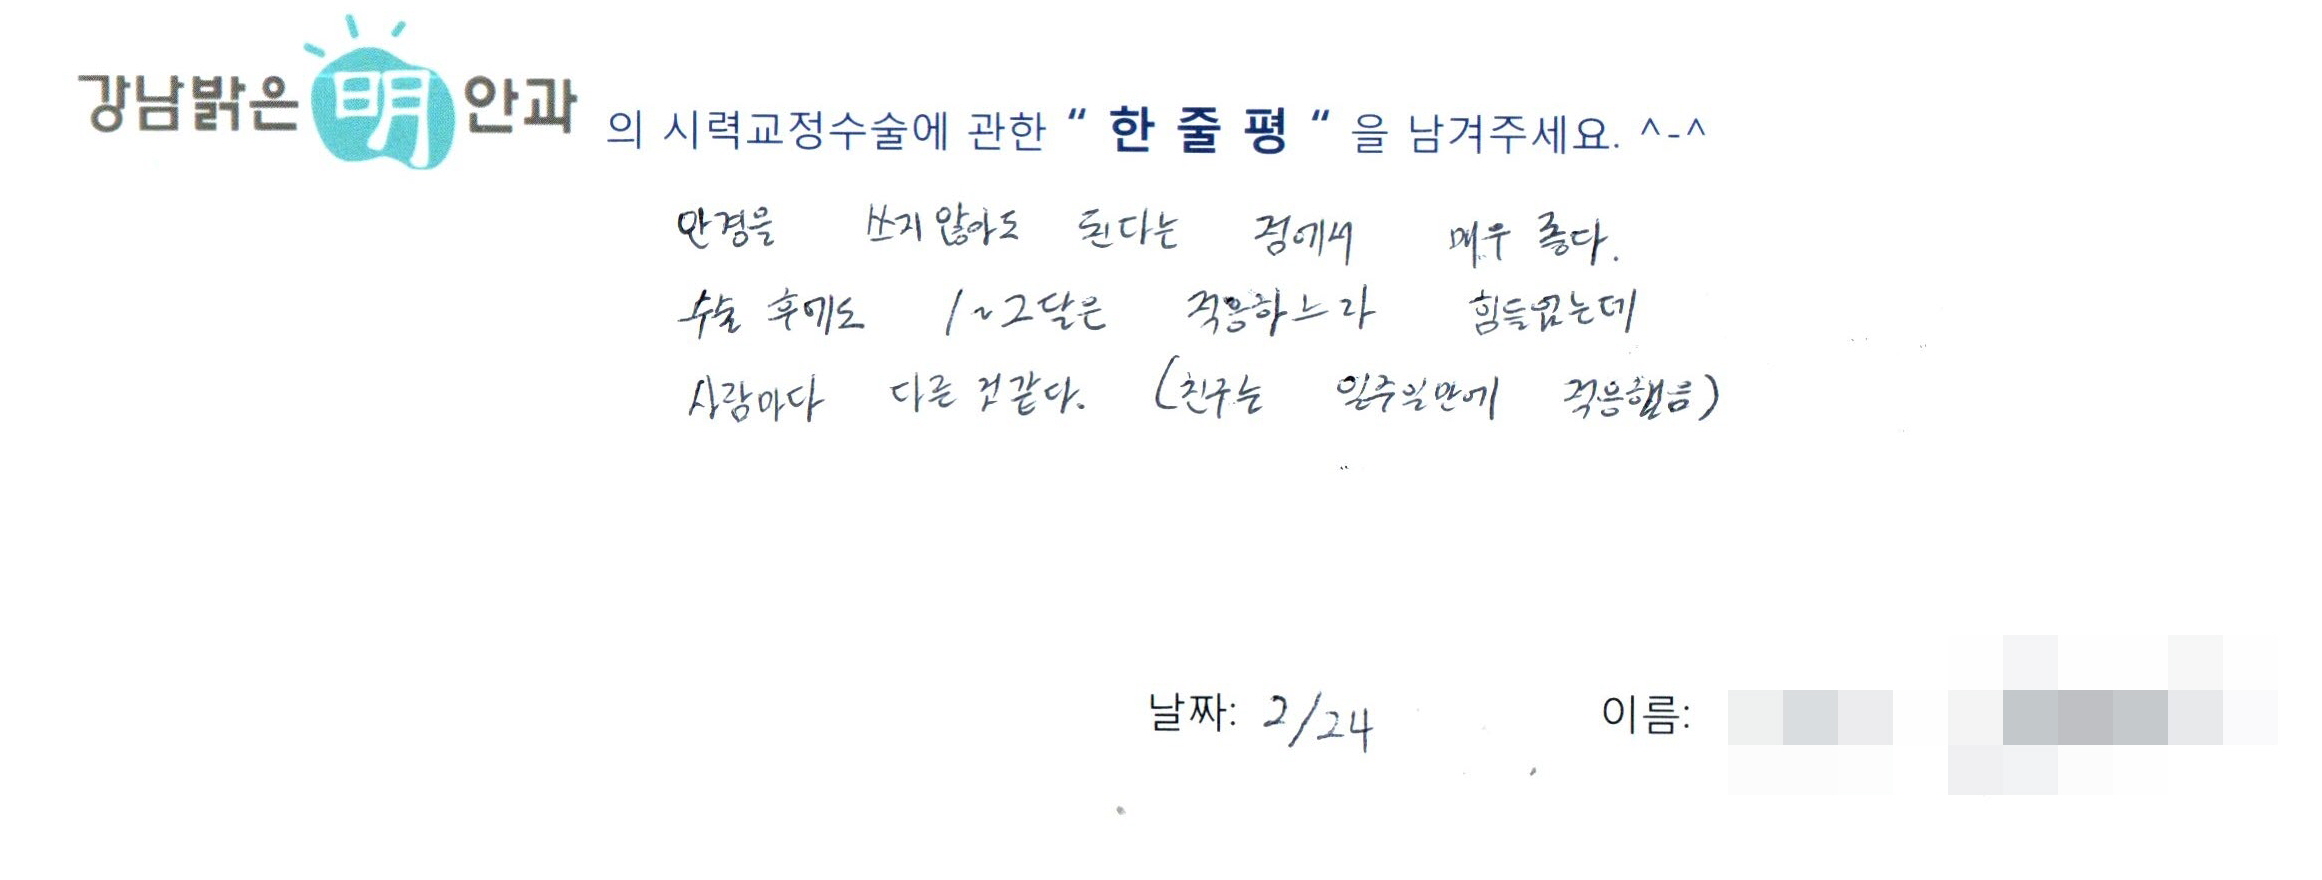 강남밝은 明 안과 의 시력교정수술에 관한 “ 한 줄 평 “ 을 남겨주세요. ^-^
안경을 쓰지 않아도 된다는 점에서 매우 좋다.
수술 후에도 1~2달은 적응하느라 힘들었는데
사람마다 다른 것 같다. (친구는 일주일만에 적응했음)
날짜: 2/24 이름: